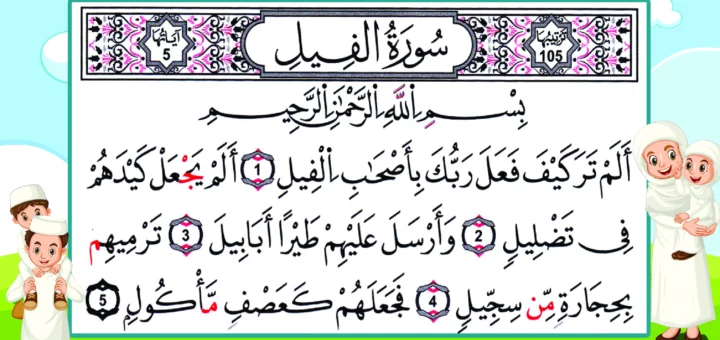 آياتها 5 سُورَةُ الفِيلِ ترتيبها 105
بِسْمِ اِ۬للَّهِ اِ۬لرَّحْمَٰنِ اِ۬لرَّحِيمِ
أَلَمْ تَرَ كَيْفَ فَعَلَ رَبُّكَ بِأَصْحَٰبِ اِ۬لْفِيلِ 1 أَلَمْ يَجْعَلْ كَيْدَهُمْ
فِي تَضْلِيلٍ 2 وَأَرْسَلَ عَلَيْهِمْ طَيْرًا أَبَابِيلَ 3 تَرْمِيهِم
بِحِجَارَةٍ مِّن سِجِّيلٍ 4 فَجَعَلَهُمْ كَعَصْفٍ مَّأْكُولٍ 5